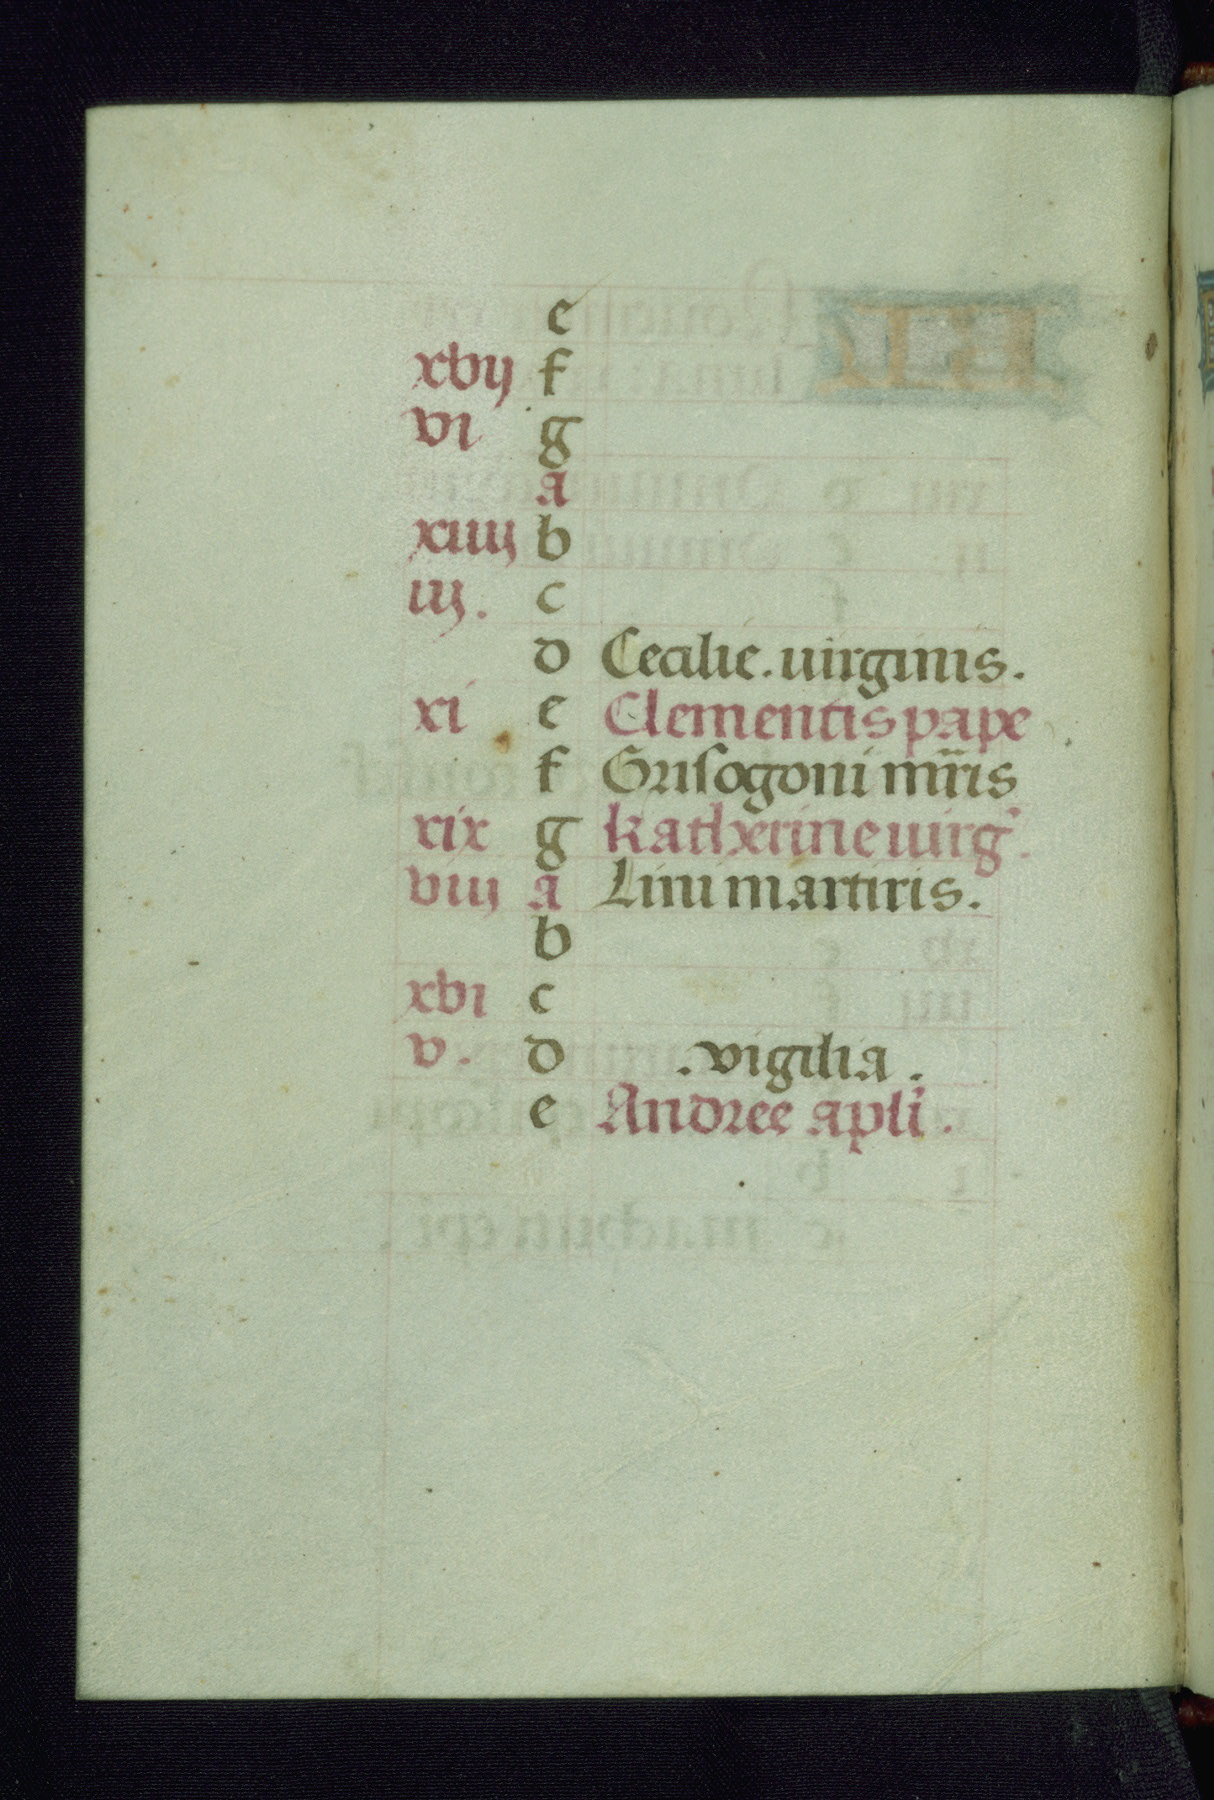 e
xvij f
vi g
a
xiiij b
iij. c
d Cecilie. uirginis.
xi e Clementis pape
f Grisogoni mr̄is
xix g Katherine uirg'.
viij a Lini martiris.
b
xvi c
v. d . vigilia .
e Andree apl'i .